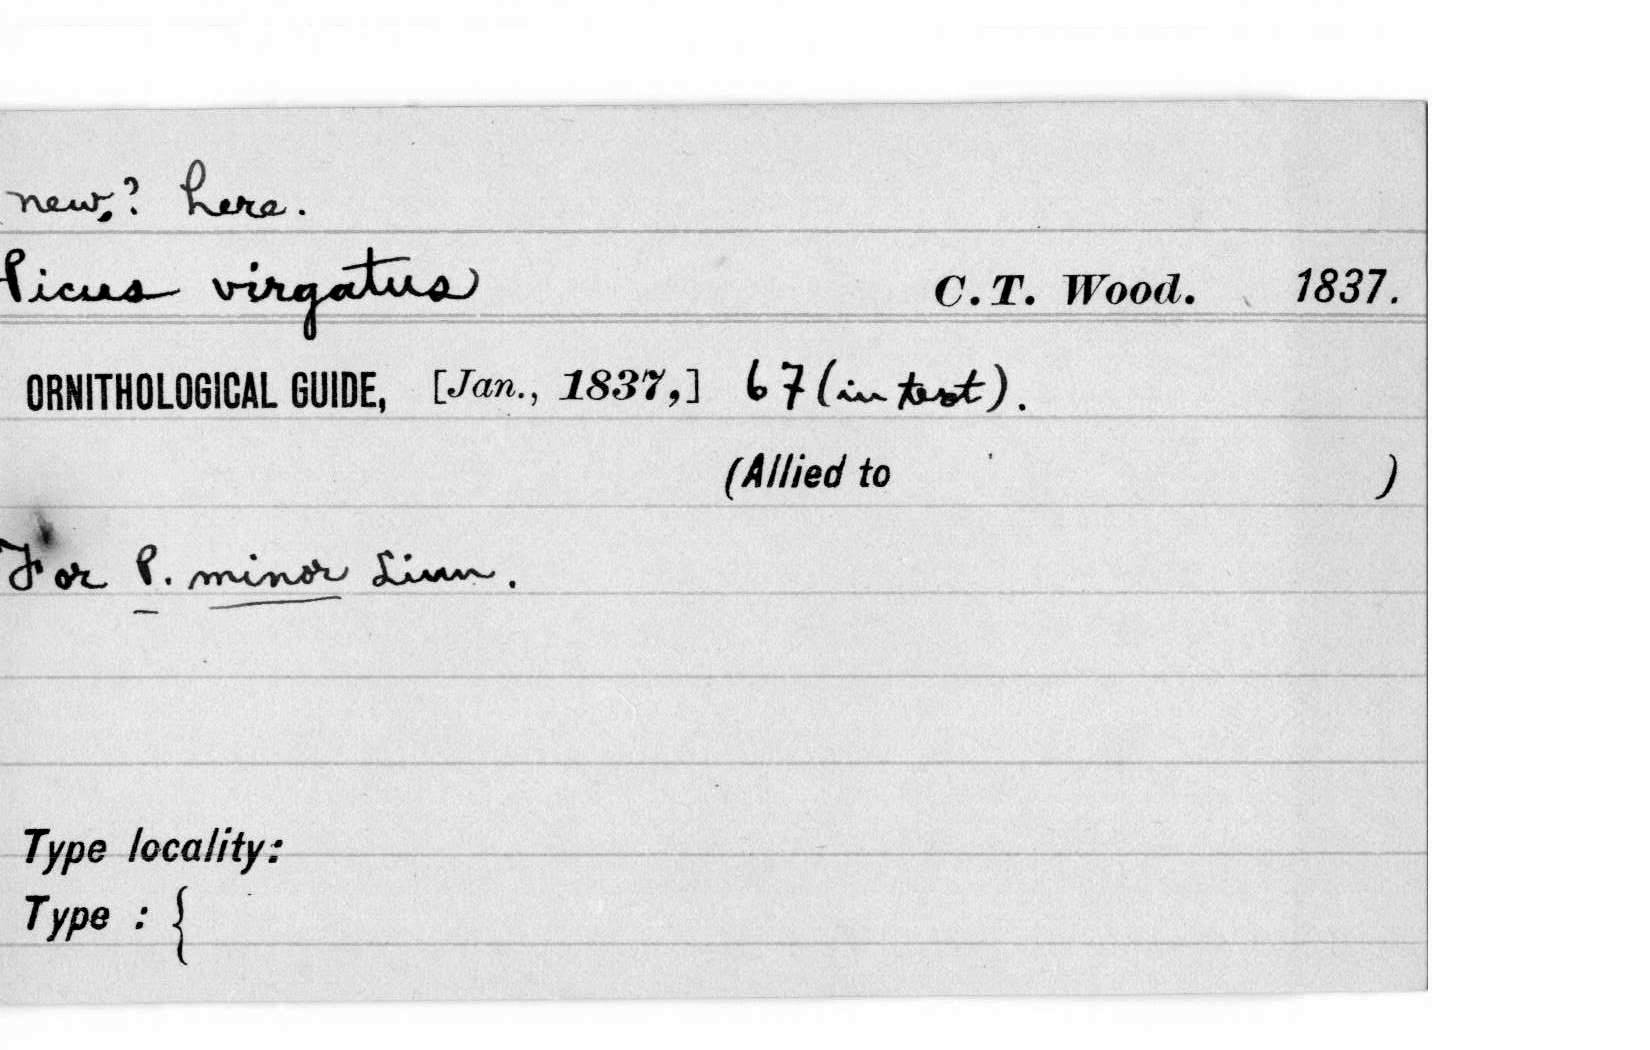 new,? here.
Picus virgatus C. T. Wood. 1837.
ORNITHOLOGICAL GUIDE, [Jan., 1837,] 67 (in text).
(Allied to )
For P. minor Linn.
Type locality:
Type : {